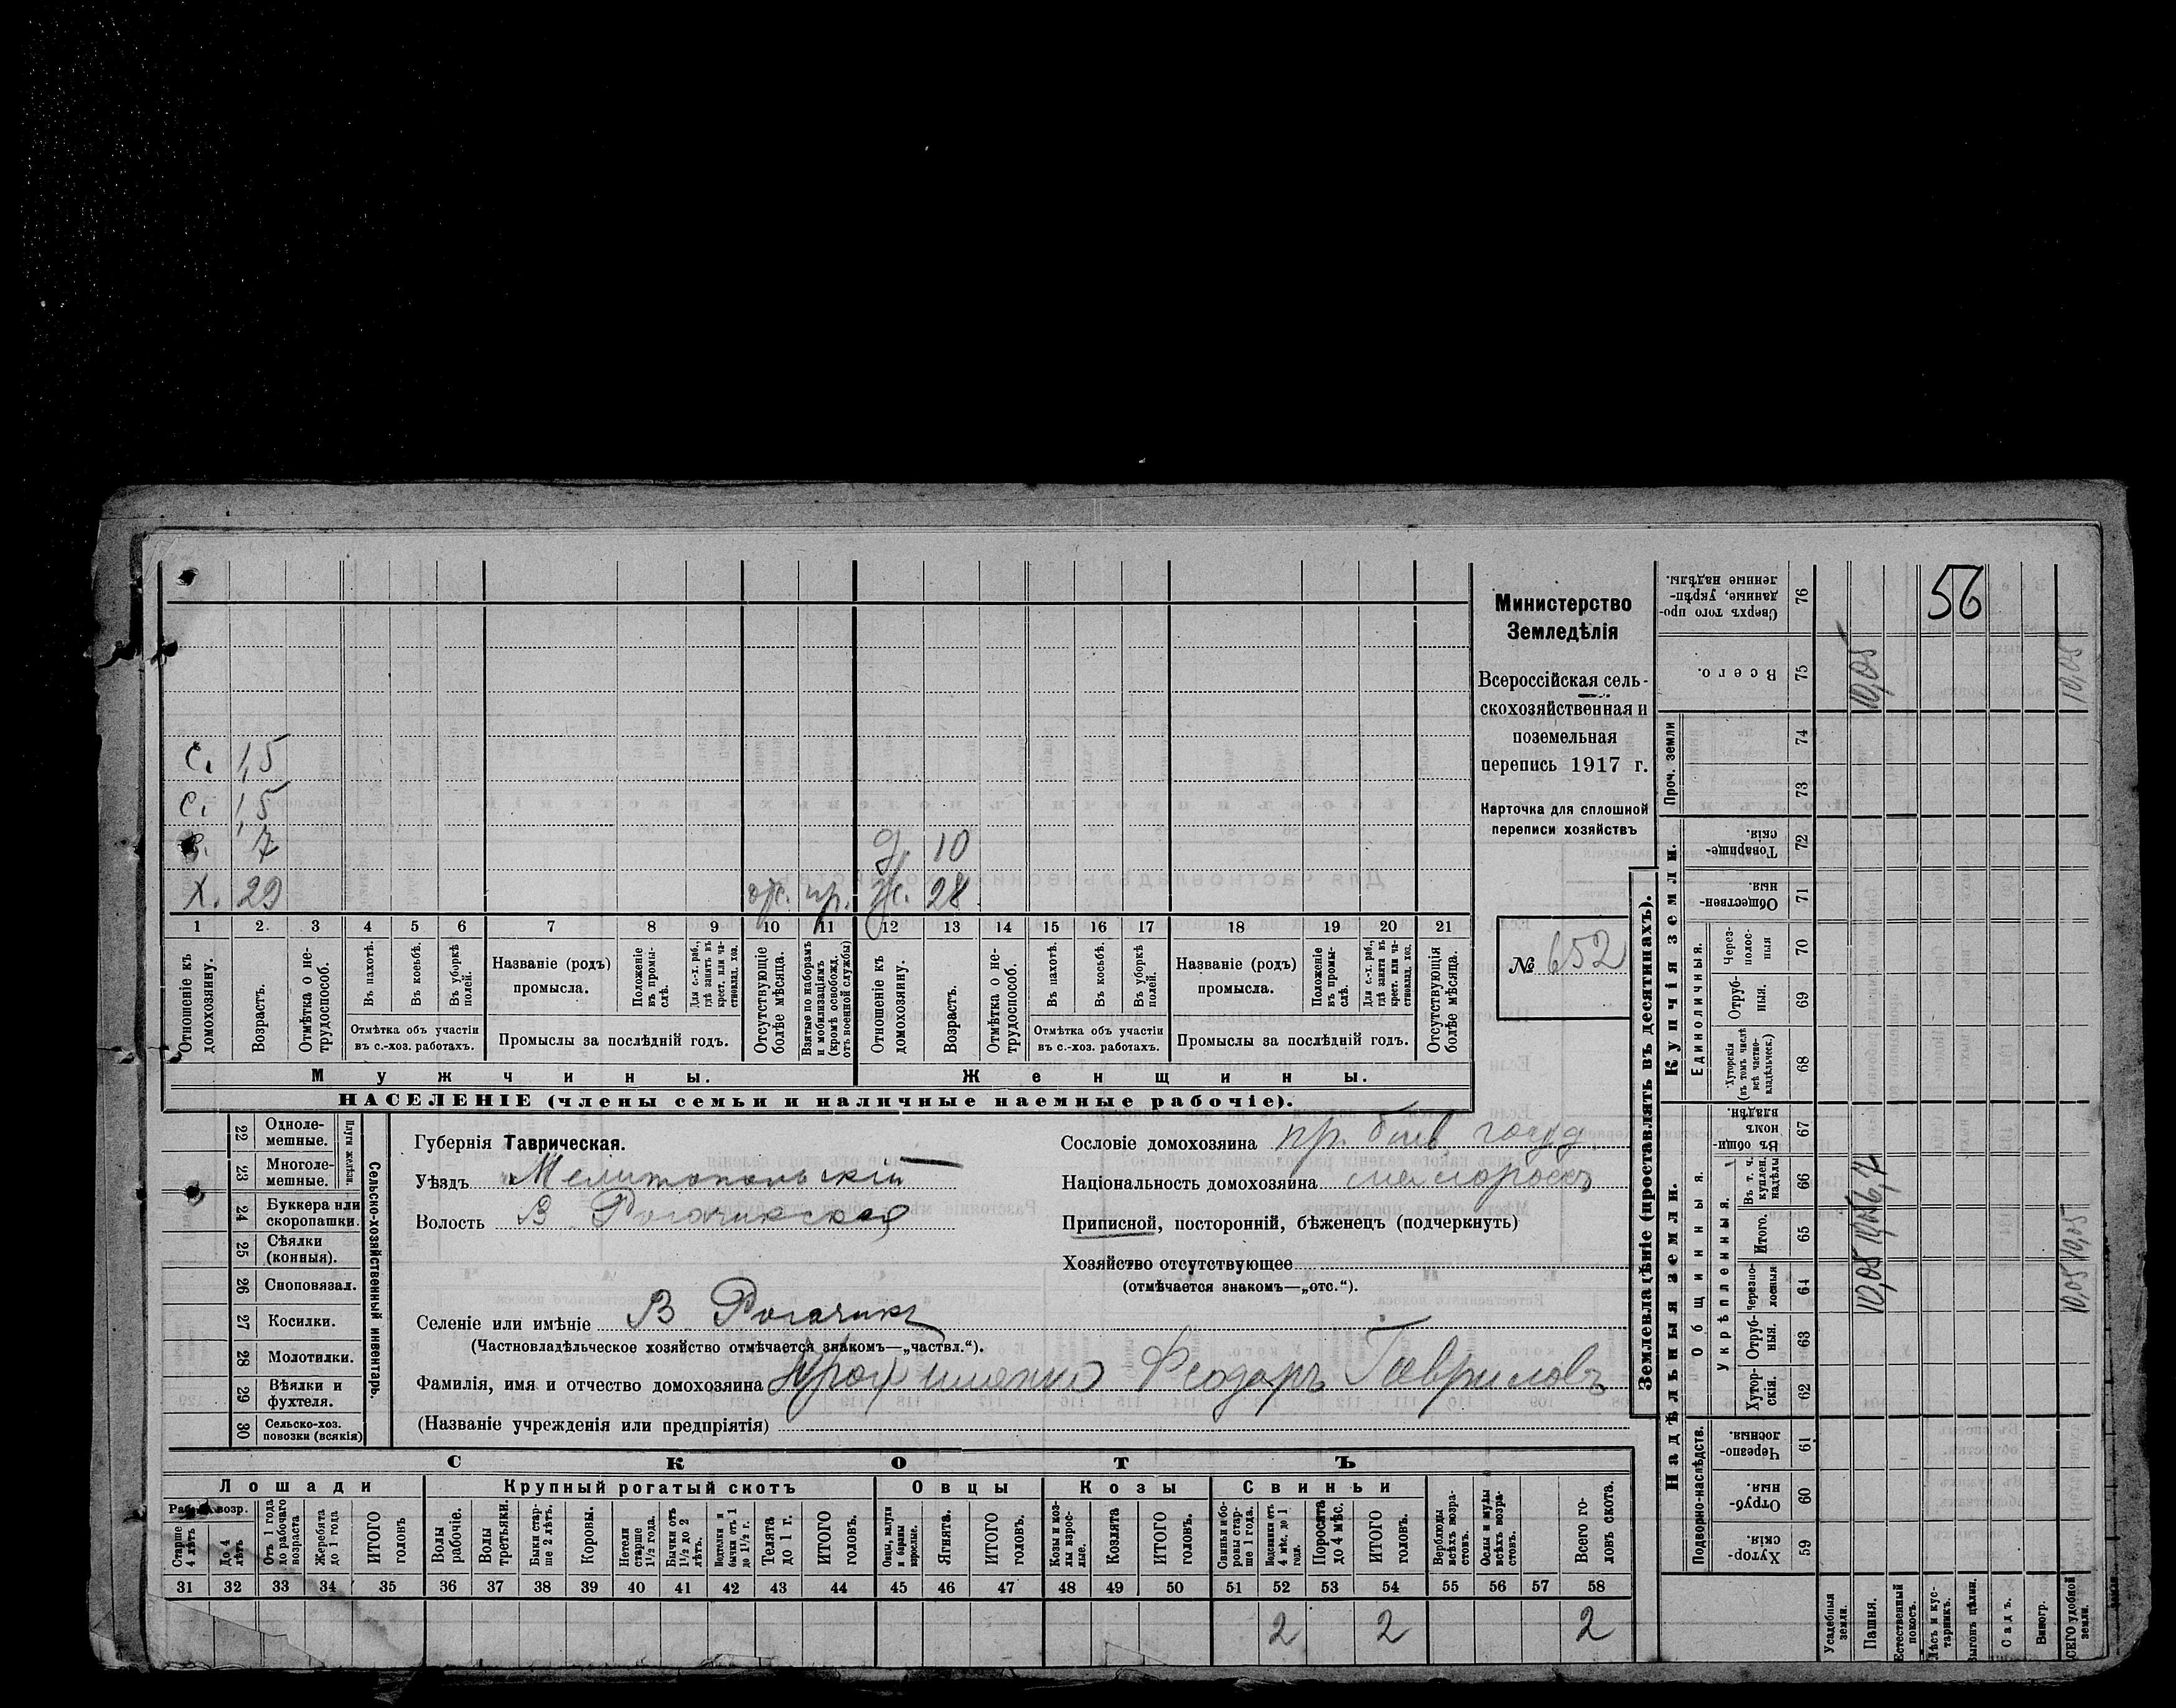 56
Министерство
Земледѣлія
Всероссійская сель-
скохозяйственная и
поземельная
перепись 1917 г.
Карточка для сплошной
переписи хозяйствъ
№ 652
с. 1,5
с. 1,5
с. 7 д. 10
Х. 29 отс. пр. ж. 28
1 2. 3 4 5 6 7 8 9 10 11 12 13 14 15 16 17 18 19 20 21
Отношеніе къ домохозяину.
Возрастъ.
Отмѣтка о не-трудоспособ.
Въ пахотѣ.
Въ косьбѣ.
Въ уборкѣ полей.
Отмѣтка объ участіи
въ с.-хоз. работахъ.
Названіе (родъ)
промысла.
Положеніе въ промы-слѣ.
Для с.-х. раб., гдѣ занятъ въ крест. или ча-стновлад. хоз.
Промыслы за послѣдній годъ.
Отсутствующіе болѣе мѣсяца.
Взятые по наборамъ и мобилизаціямъ (кромѣ освобожд. отъ военной службы)
Отношеніе къ домохозяину.
Возрастъ.
Отмѣтка о не-трудоспособ.
Въ пахотѣ.
Въ косьбѣ.
Въ уборкѣ полей.
Отмѣтка объ участіи
въ с.-хоз. работахъ.
Названіе (родъ)
промысла.
Положеніе въ промы-слѣ.
Для с.-х. раб., гдѣ занята въ крест. или ча-стновлад. хоз.
Промыслы за послѣдній годъ.
Отсутствующія болѣе мѣсяца.
Мужчины. Женщины.
НАСЕЛЕНІЕ (члены семьи и наличные наемные рабочіе).
22 Одноле-мешные.
23 Многоле-мешные.
Плуги желѣзн.
24 Буккера или скоропашки.
25 Сѣялки (конныя).
26 Сноповязал.
27 Косилки.
28 Молотилки.
29 Вѣялки и фухтеля.
30 Сельско-хоз. повозки (всякія)
Сельско-хозяйственный инвентарь.
Губернія Таврическая.
Уѣздъ Мелитопольскій
Волость В Рогачикская
Селеніе или имѣніе В Рогачикъ
(Частновладѣльческое хозяйство отмѣчается знакомъ—„частвл.“).
Сословіе домохозяина пр. быв госуд
Національность домохозяина малороссъ
Приписной, посторонній, бѣженецъ (подчеркнуть)
Хозяйство отсутствующее
(отмѣчается знакомъ—„отс.“).
Фамилія, имя и отчество домохозяина Феодоръ Гавриловъ
(Названіе учрежденія или предпріятія)
СКОТЪ
Лошади Крупный рогатый скотъ Овцы Козы Свиньи
Рабоч. возр.
Старше 4 лѣтъ
До 4 лѣтъ
Отъ 1 года до рабочаго возраста
Жеребята до 1 года
ИТОГО головъ
Волы рабочіе.
Волы третьяки.
Быки стар-ше 2 лѣтъ.
Коровы.
Нетели старше 1½ года.
Бычки отъ 1½ до 2 лѣтъ.
Подтелки и бычки отъ 1 до 1½ г.
Телята до 1 г.
ИТОГО головъ.
Овцы, валухи и бараны взрослые.
Ягнята.
ИТОГО головъ.
Козы и коз-лы взрос-лые.
Козлята
ИТОГО головъ.
Свиньи и бо-ровы стар-ше 1 года.
Подсвинки отъ 4 мѣс. до 1 года.
Поросята до 4 мѣс.
ИТОГО головъ.
Верблюды всѣхъ возра-стовъ.
Ослы и мулы всѣхъ возра-стовъ.
Всего го-ловъ скота.
31 32 33 34 35 36 37 38 39 40 41 42 43 44 45 46 47 48 49 50 51 52 53 54 55 56 57 58
2 2 2
Землевладѣніе (проставлять въ десятинахъ).
Надѣльныя земли. Купчія земли.
Подворно-наслѣдств.
Общинныя.
Укрѣпленныя.
Единоличныя.
Проч. земли
Хутор-скія. 59
Отруб-ныя. 60
Черезпо-лосныя. 61
Хутор-скія. 62
Отруб-ныя. 63
Черезпо-лосныя 64
Итого. 65
Въ т. ч. куплен. надѣлы 66
Въ общин-номъ владѣн. 67
Хуторскія (въ томъ числѣ всѣ частно-владѣльческ.) 68
Отруб-ныя. 69
Через-полос-ныя 70
Обществен-ныя. 71
Товарище-скія. 72
73
74
Всего. 75
Сверхъ того про-данные, укрѣп-ленные надѣлы. 76
Усадебныя земли.
Пашня. 10,05 10,05 6,7 10,05
Естественный покосъ.
Лѣсъ и кус-тарникъ.
Выгонъ цѣлин.
Садъ.
Виногр.
ВСЕГО удобной земли. 10,05 10,05 10,05